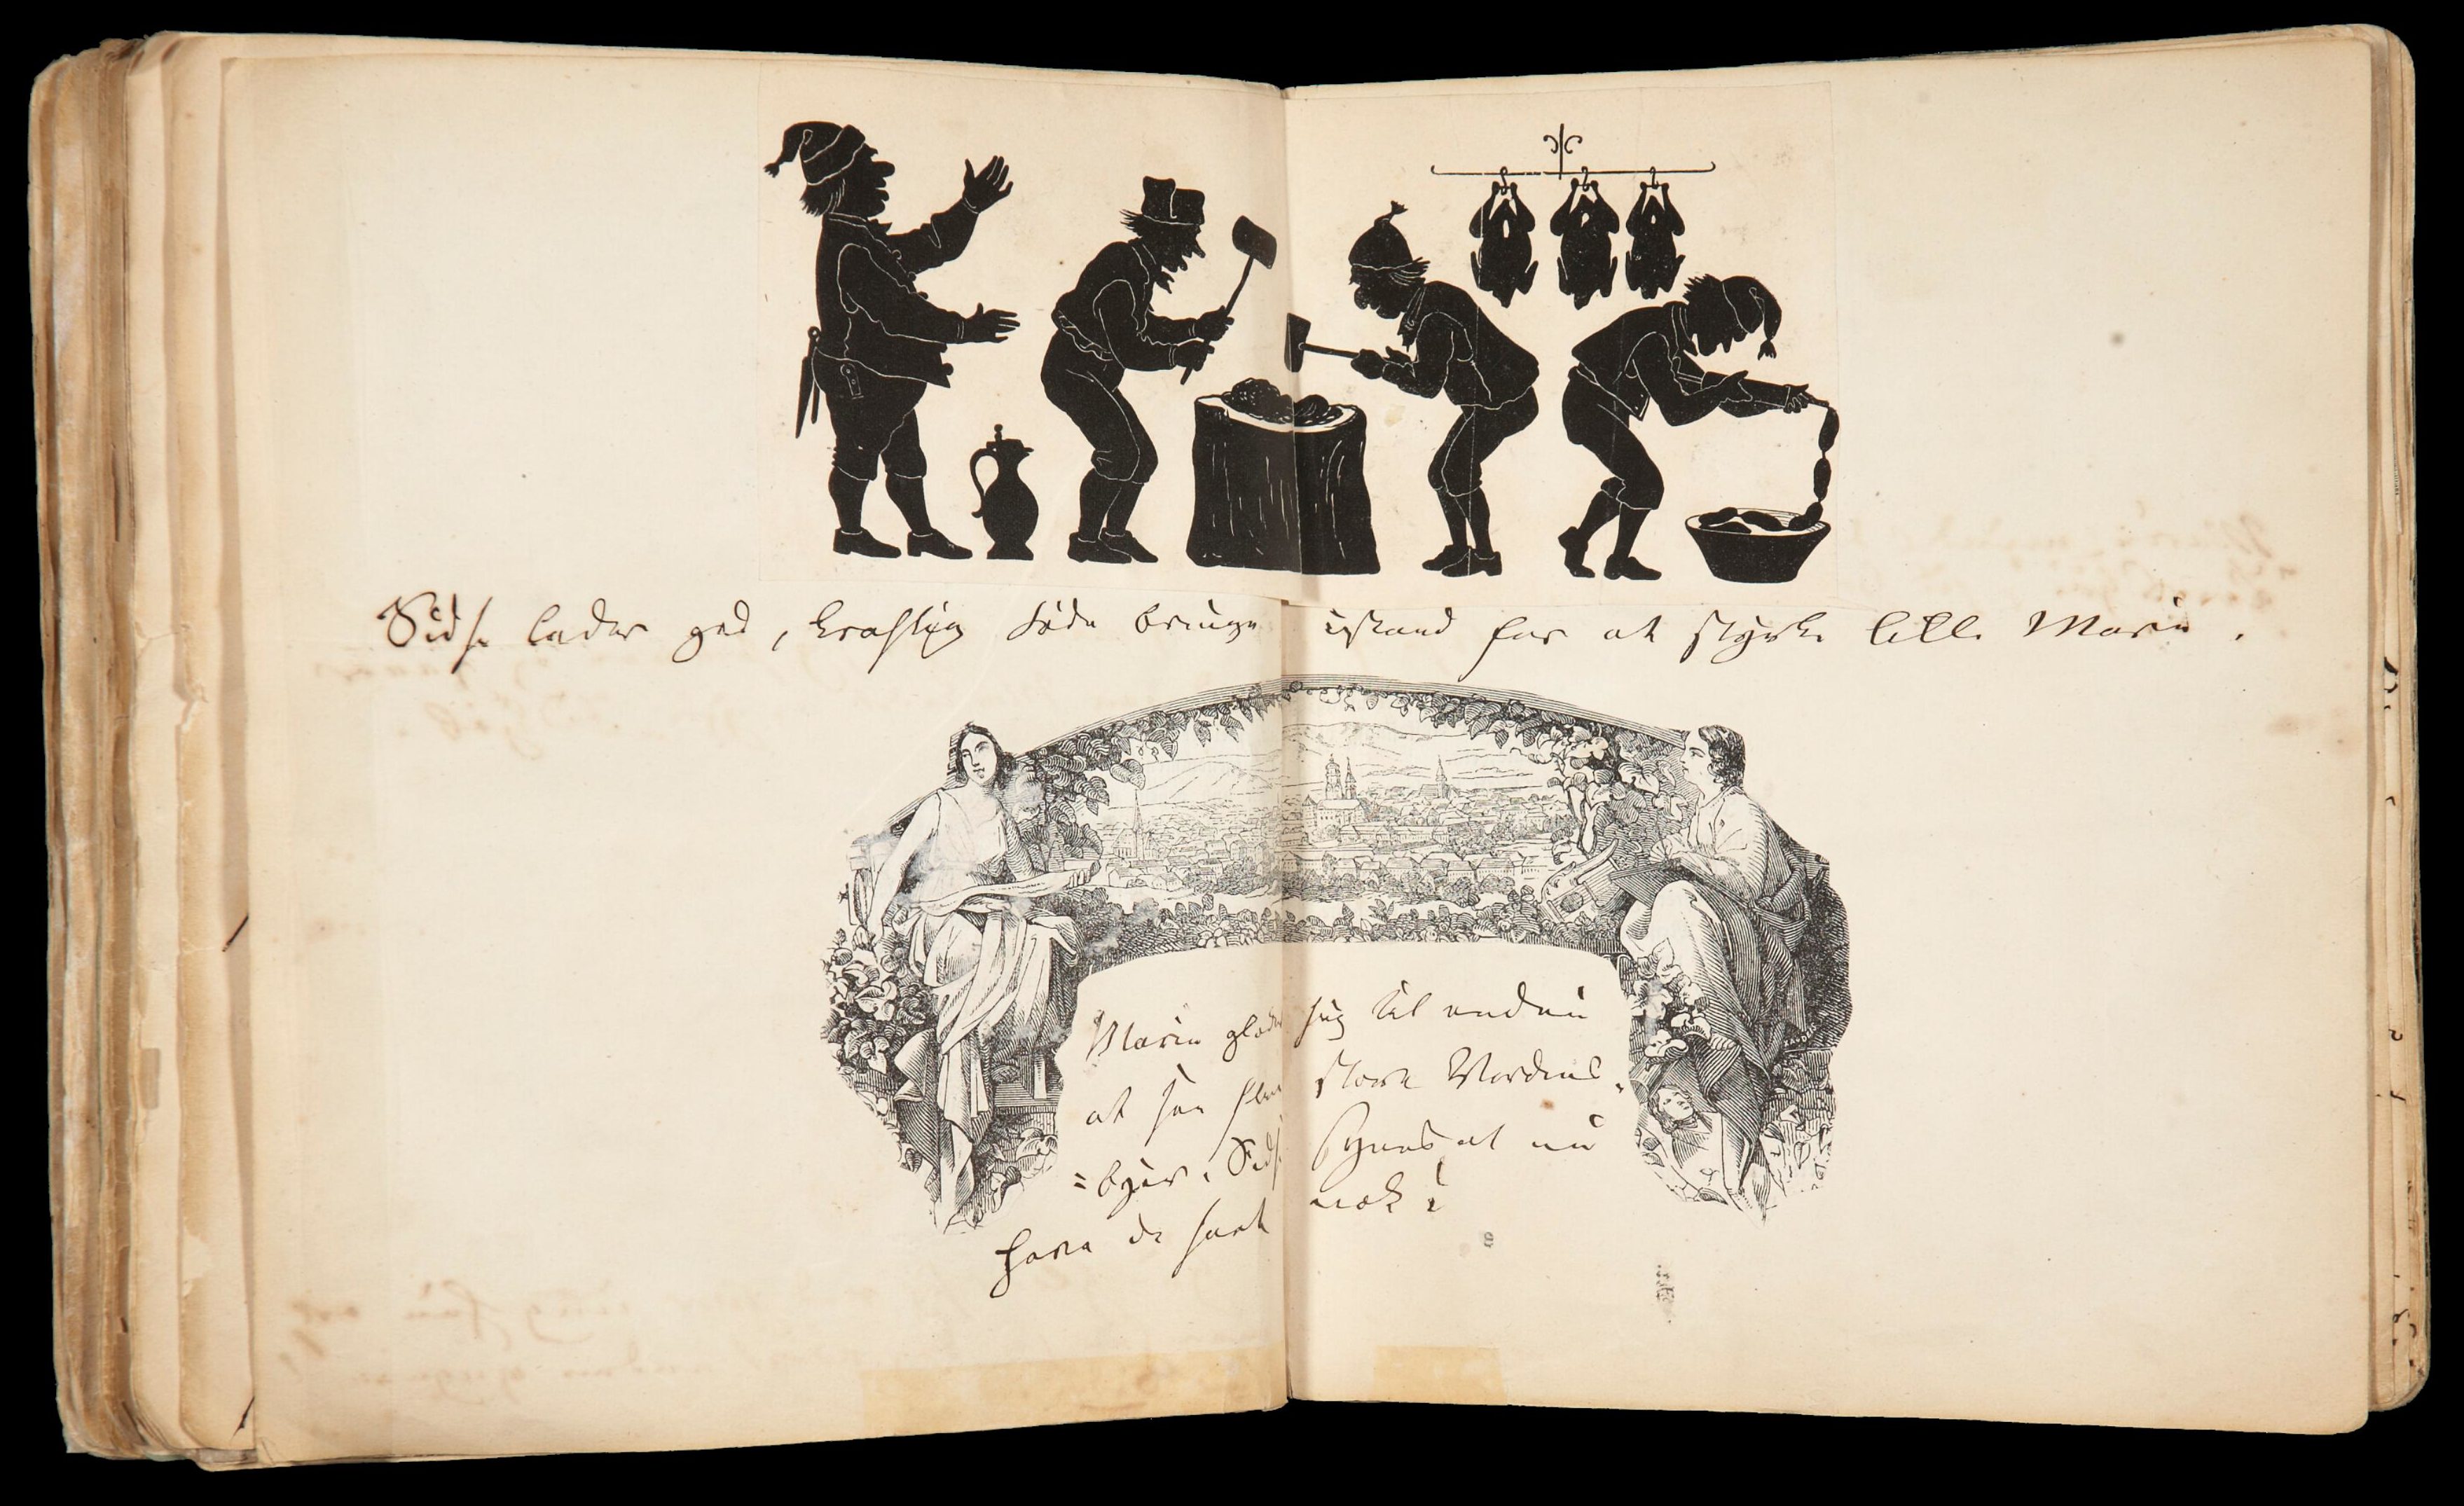 Sidse lader god, kraftig Føde bringe istand for at styrke lille Marie.
Marie glæder sig til endnu
at see flere store Verdens-
=byer. Sidse synes at nu
have de seet nok!